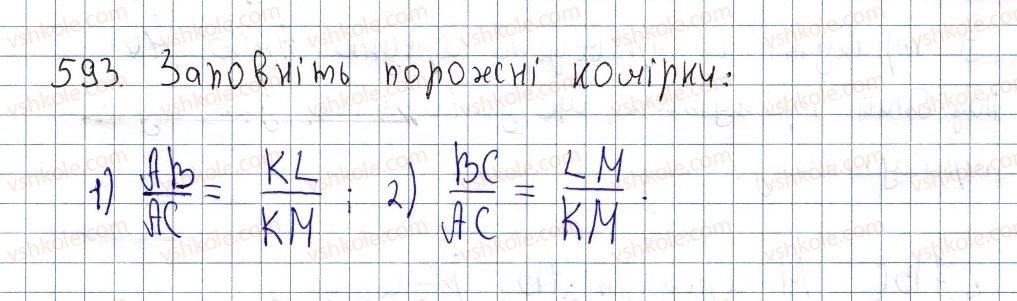 593. Заповніть порожні комірки:
1) AB/AC = KL/KM ; 2) BC/AC = LM/KM .